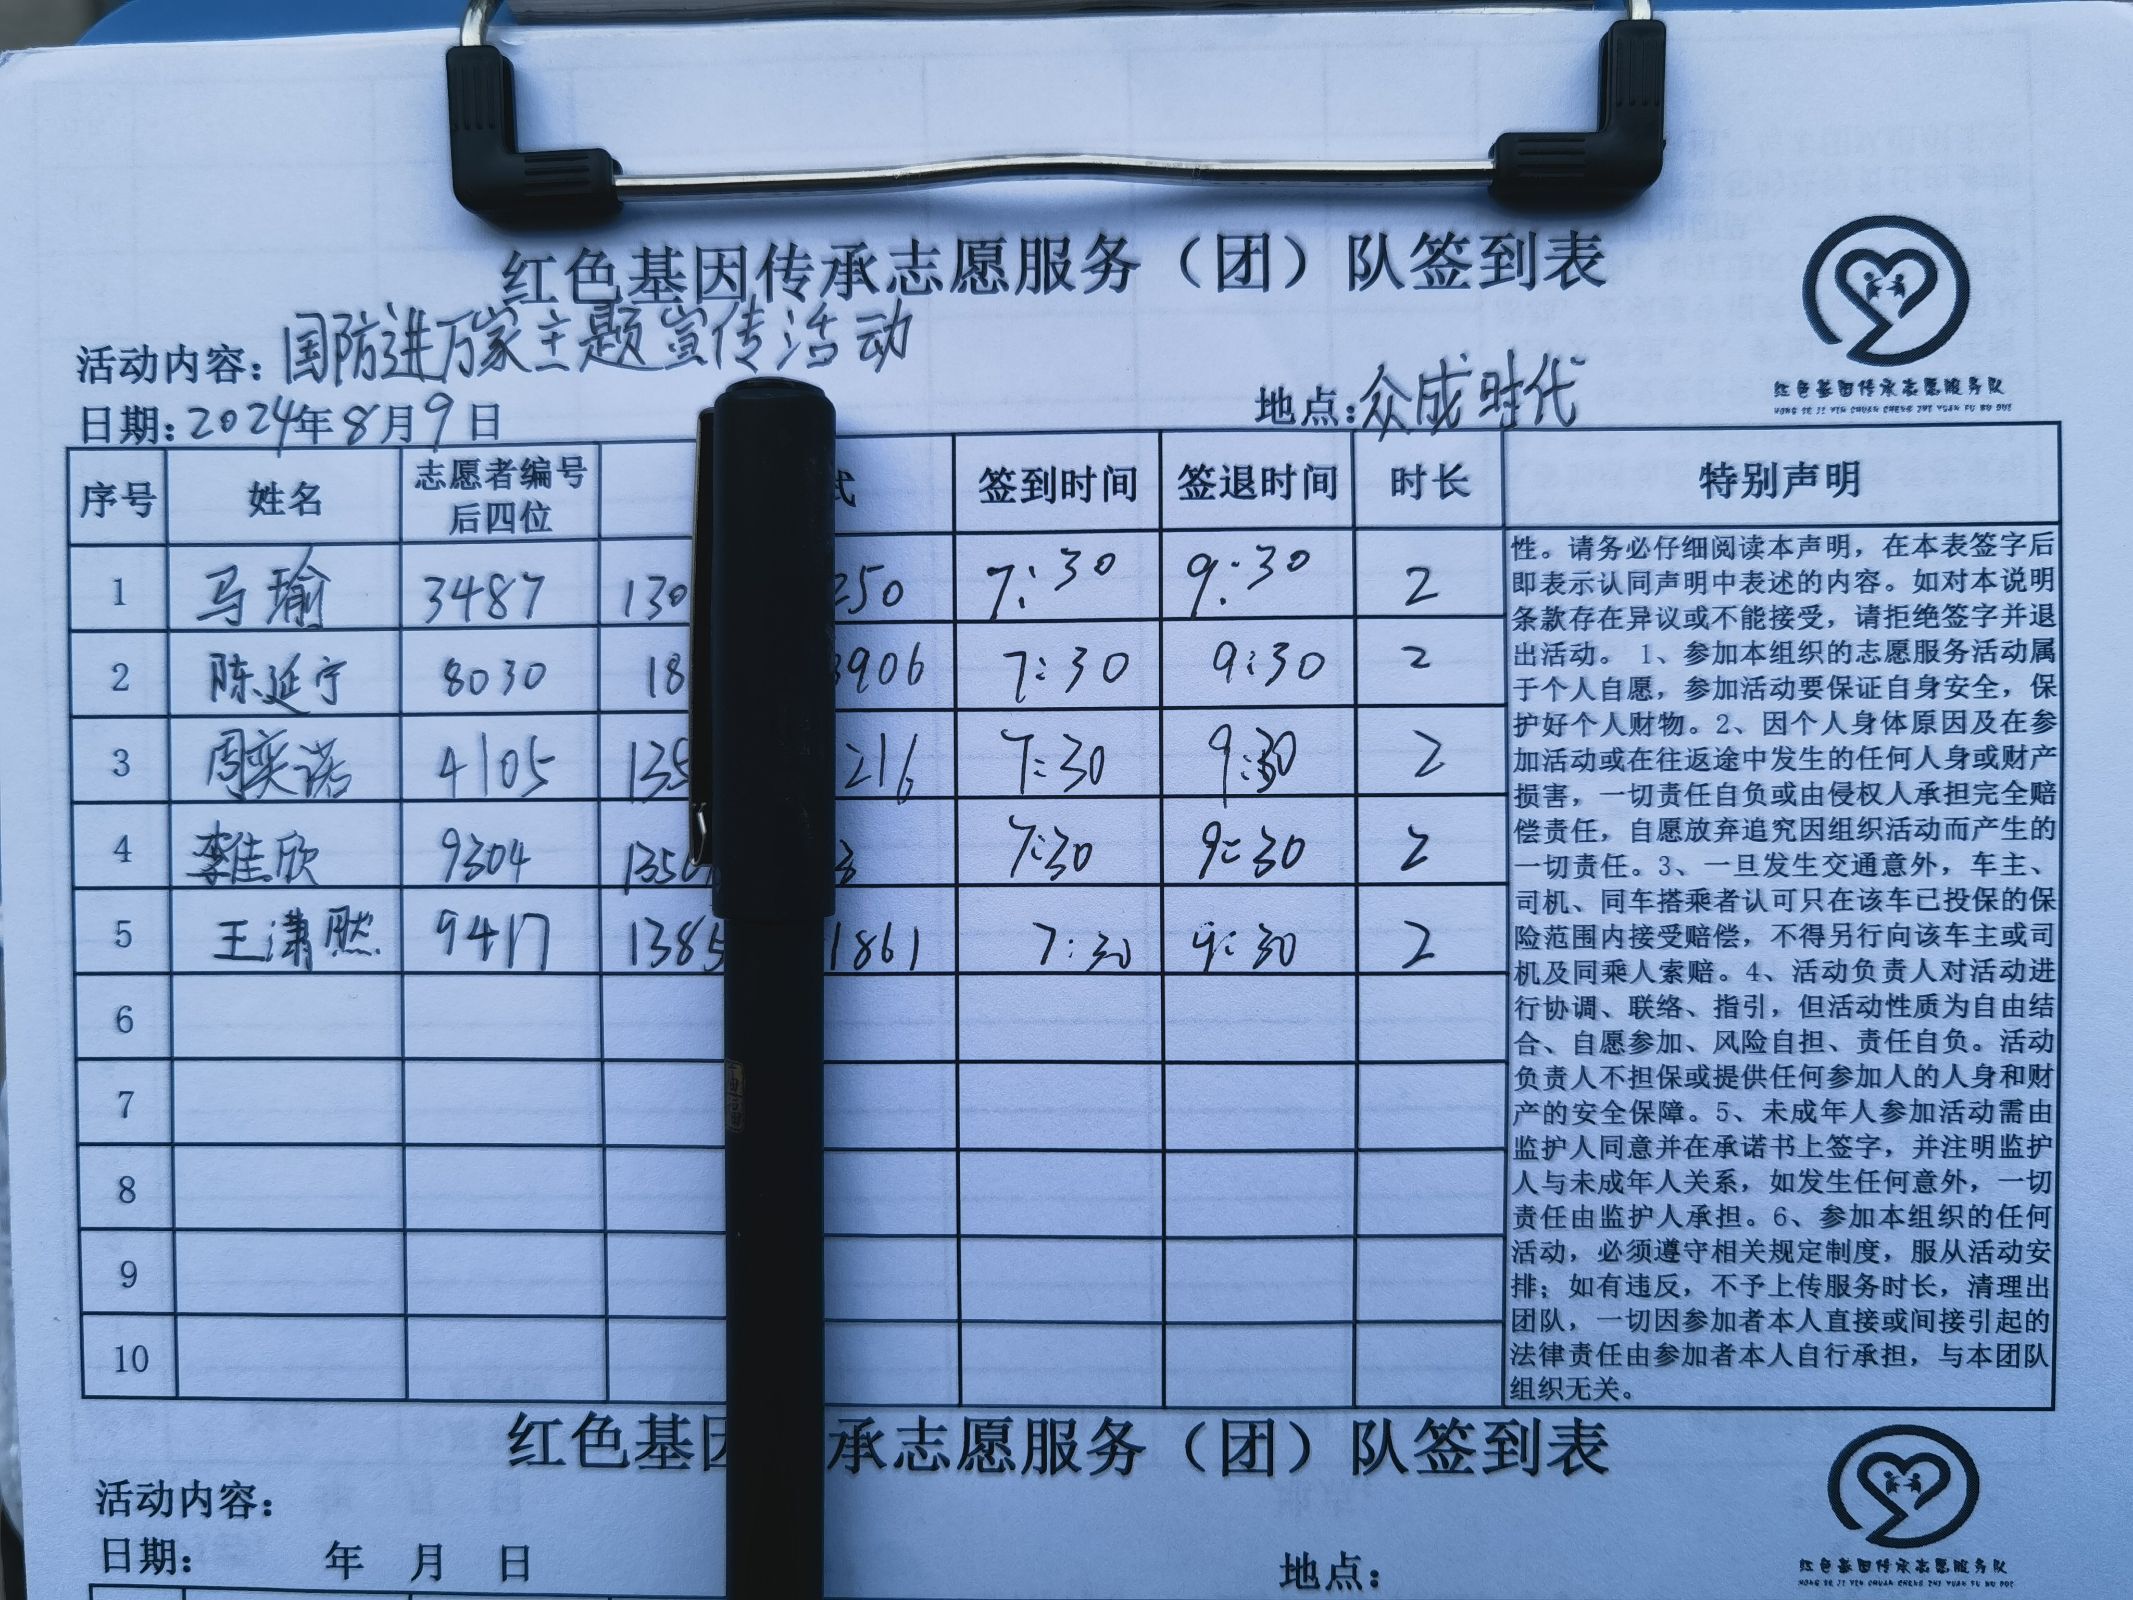 红色基因传承志愿服务（团）队签到表
活动内容：国防进万家主题宣传活动
日期：2024年8月9日 地点：众成时代
红色基因传承志愿服务队
HONG SE JI YIN CHUAN CHENG ZHI YUAN FU WU DUI
序号 姓名 志愿者编号后四位 式 签到时间 签退时间 时长 特别声明
1 马瑜 3487 130 250 7:30 9:30 2
2 陈延宁 8030 18 3906 7:30 9:30 2
3 周奕诺 4105 135 216 7:30 9:30 2
4 李佳欣 9304 1350 3 7:30 9:30 2
5 王潇然 9417 1385 1861 7:30 9:30 2
6
7
8
9
10
性。请务必仔细阅读本声明，在本表签字后
即表示认同声明中表述的内容。如对本说明
条款存在异议或不能接受，请拒绝签字并退
出活动。1、参加本组织的志愿服务活动属
于个人自愿，参加活动要保证自身安全，保
护好个人财物。2、因个人身体原因及在参
加活动或在往返途中发生的任何人身或财产
损害，一切责任自负或由侵权人承担完全赔
偿责任，自愿放弃追究因组织活动而产生的
一切责任。3、一旦发生交通意外，车主、
司机、同车搭乘者认可只在该车已投保的保
险范围内接受赔偿，不得另行向该车主或司
机及同乘人索赔。4、活动负责人对活动进
行协调、联络、指引，但活动性质为自由结
合、自愿参加、风险自担、责任自负。活动
负责人不担保或提供任何参加人的人身和财
产的安全保障。5、未成年人参加活动需由
监护人同意并在承诺书上签字，并注明监护
人与未成年人关系，如发生任何意外，一切
责任由监护人承担。6、参加本组织的任何
活动，必须遵守相关规定制度，服从活动安
排；如有违反，不予上传服务时长，清理出
团队，一切因参加者本人直接或间接引起的
法律责任由参加者本人自行承担，与本团队
组织无关。
红色基因承志愿服务（团）队签到表
活动内容：
日期： 年 月 日 地点：
红色基因传承志愿服务队
HONG SE JI YIN CHUAN CHENG ZHI YUAN FU WU DUI